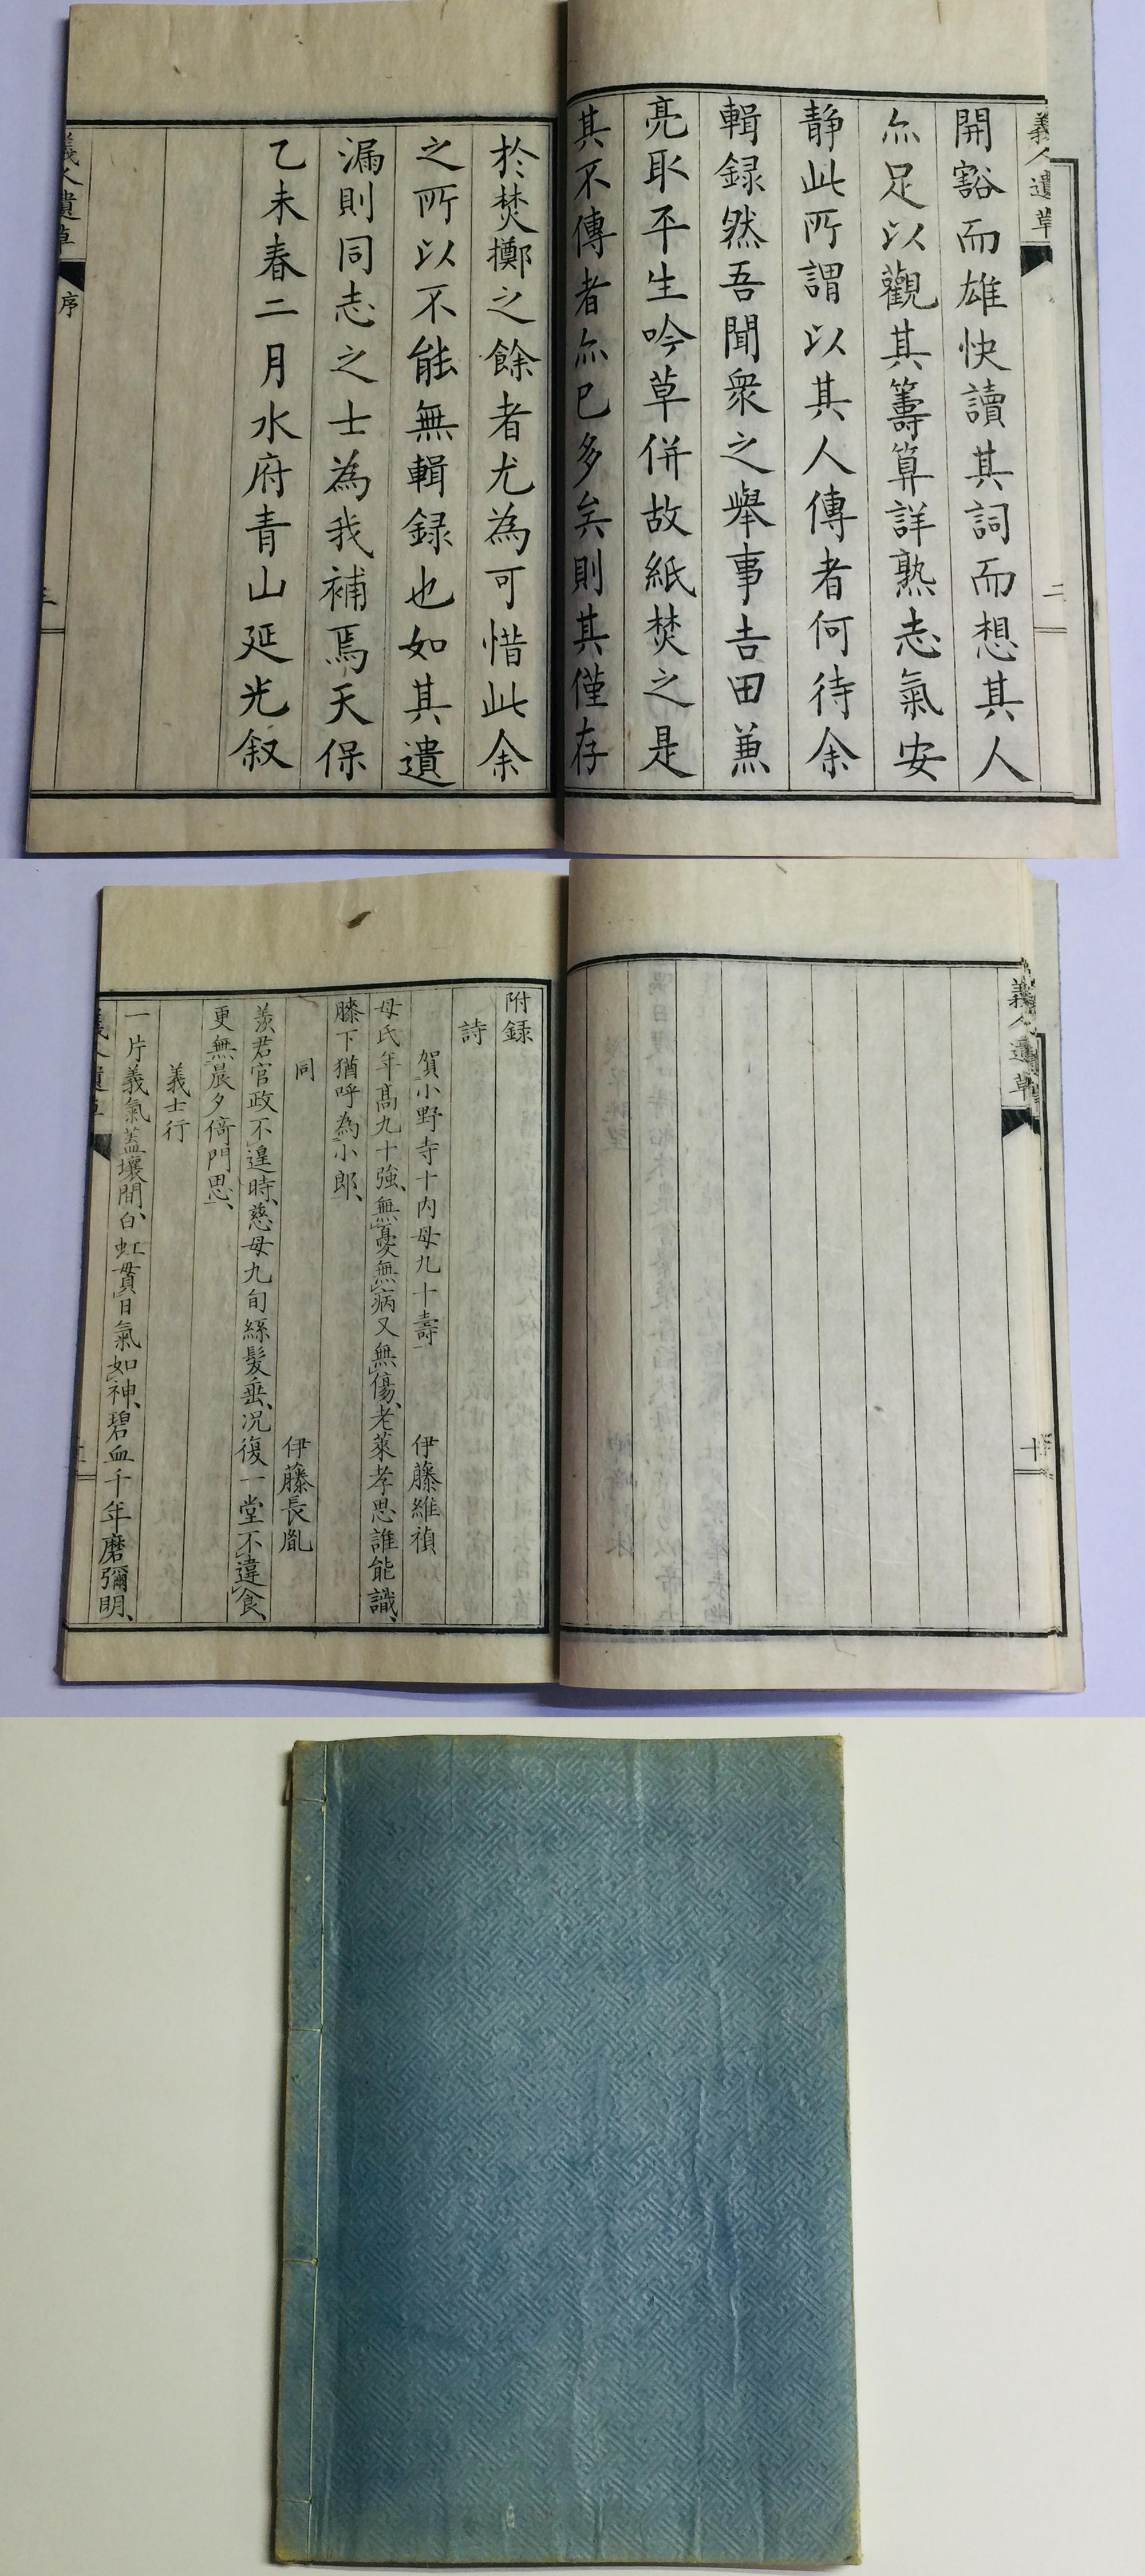 義人遺草
二
開豁而雄快讀其詞而想其人
亦足以觀其籌算詳熟志氣安
靜此所謂以其人傳者何待余
輯録然吾聞衆之舉事吉田兼
亮取平生吟草併故紙焚之是
其不傳者亦已多矣則其僅存
於焚擲之餘者尤為可惜此余
之所以不能無輯録也如其遺
漏則同志之士為我補焉天保
乙未春二月水府青山延光叙
義人遺草
序
三
義人遺草
十
附録
詩
賀小野寺十内母九十壽 伊藤維禎
母氏年高九十強無憂無病又無傷老萊孝思誰能識
膝下猶呼為小郎
同 伊藤長胤
羨君官政不遑時慈母九旬絲髮垂况復一堂不違食
更無晨夕倚門思
義士行
一片義氣蓋壤間白虹貫日氣如神碧血千年磨彌明
義人遺草